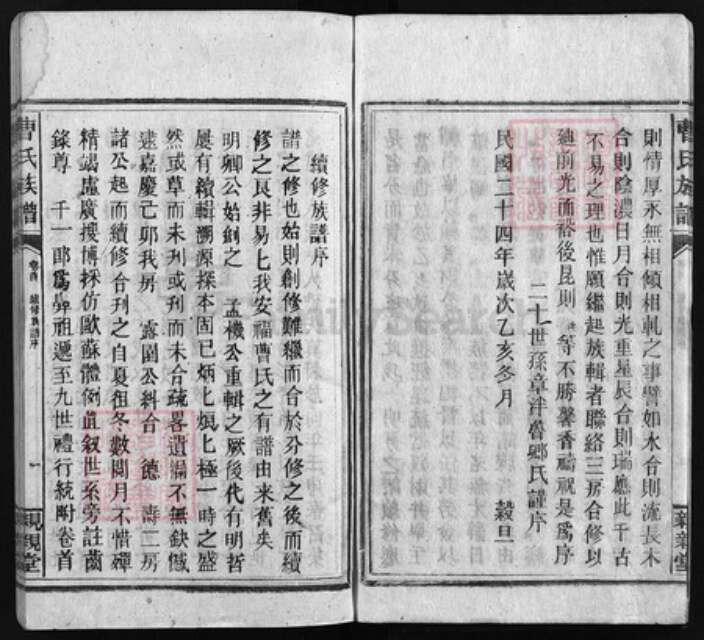 曹氏族譜
親親堂
則情厚永無相傾相軋之事譬如水合則流長木
合則陰濃日月合則光重星辰合則瑞應此千古
不易之理也惟願繼起族輯者聯絡三房合修以
廸前光而裕後昆則 等不勝馨香禱祝是為序
二十世孫章泮魯鄉氏謹序
民國二十四年歲次乙亥冬月 穀旦
續修族譜序
譜之修也始則創修難繼而合於分修之後而續
修之艮非易匕我安福曹氏之有譜由來舊矣
明卿公始創之 孟機公重輯之厥後代有明哲
屢有續輯溯源探本固已炳匕烺匕極一時之盛
然或草而未刊或刊而未合疏畧遺漏不無缺憾
逮嘉慶己卯我房 露圃公糾合 德 壽二房
諸公起而續修合刊之自夏徂冬數閱月不惜殫
精竭慮廣搜博採仿歐蘇體例直叙世系旁註齒
錄尊 千一郎為舁祖遞至九世禮行統附卷首
曹氏族譜
卷首 續修族譜序
一
親親堂